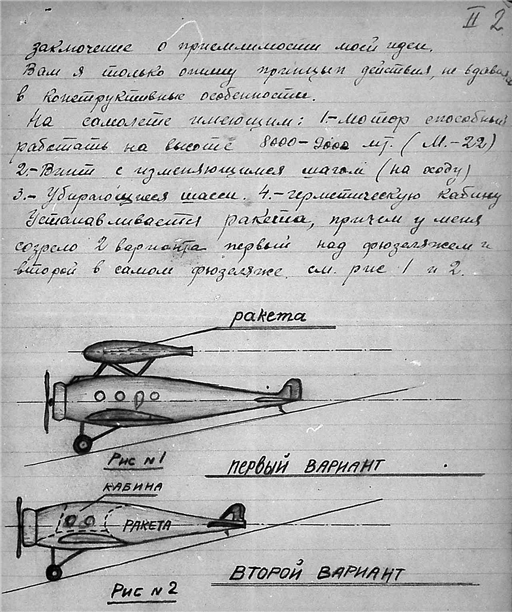 II 2
заключение о приемлимости моей идеи.
Вам я только опишу принцып действия не вдаваясь
в конструктивные особенности.
На самолете имеющим: 1.- мотор способный
работать на высоте 8000-9000 мт. (М.-22)
2.- Винт с изменяющимся шагом (на ходу)
3.- Убирающиеся шасси. 4.- герметическую кабину
Устанавливается ракета, причем у меня
созрело 2 варианта первый над фюзеляжем и
второй в самом фюзеляже. см. рис 1 и 2.
ракета
Рис №1
ПЕРВЫЙ ВАРИАНТ
КАБИНА
РАКЕТА
Рис №2
ВТОРОЙ ВАРИАНТ